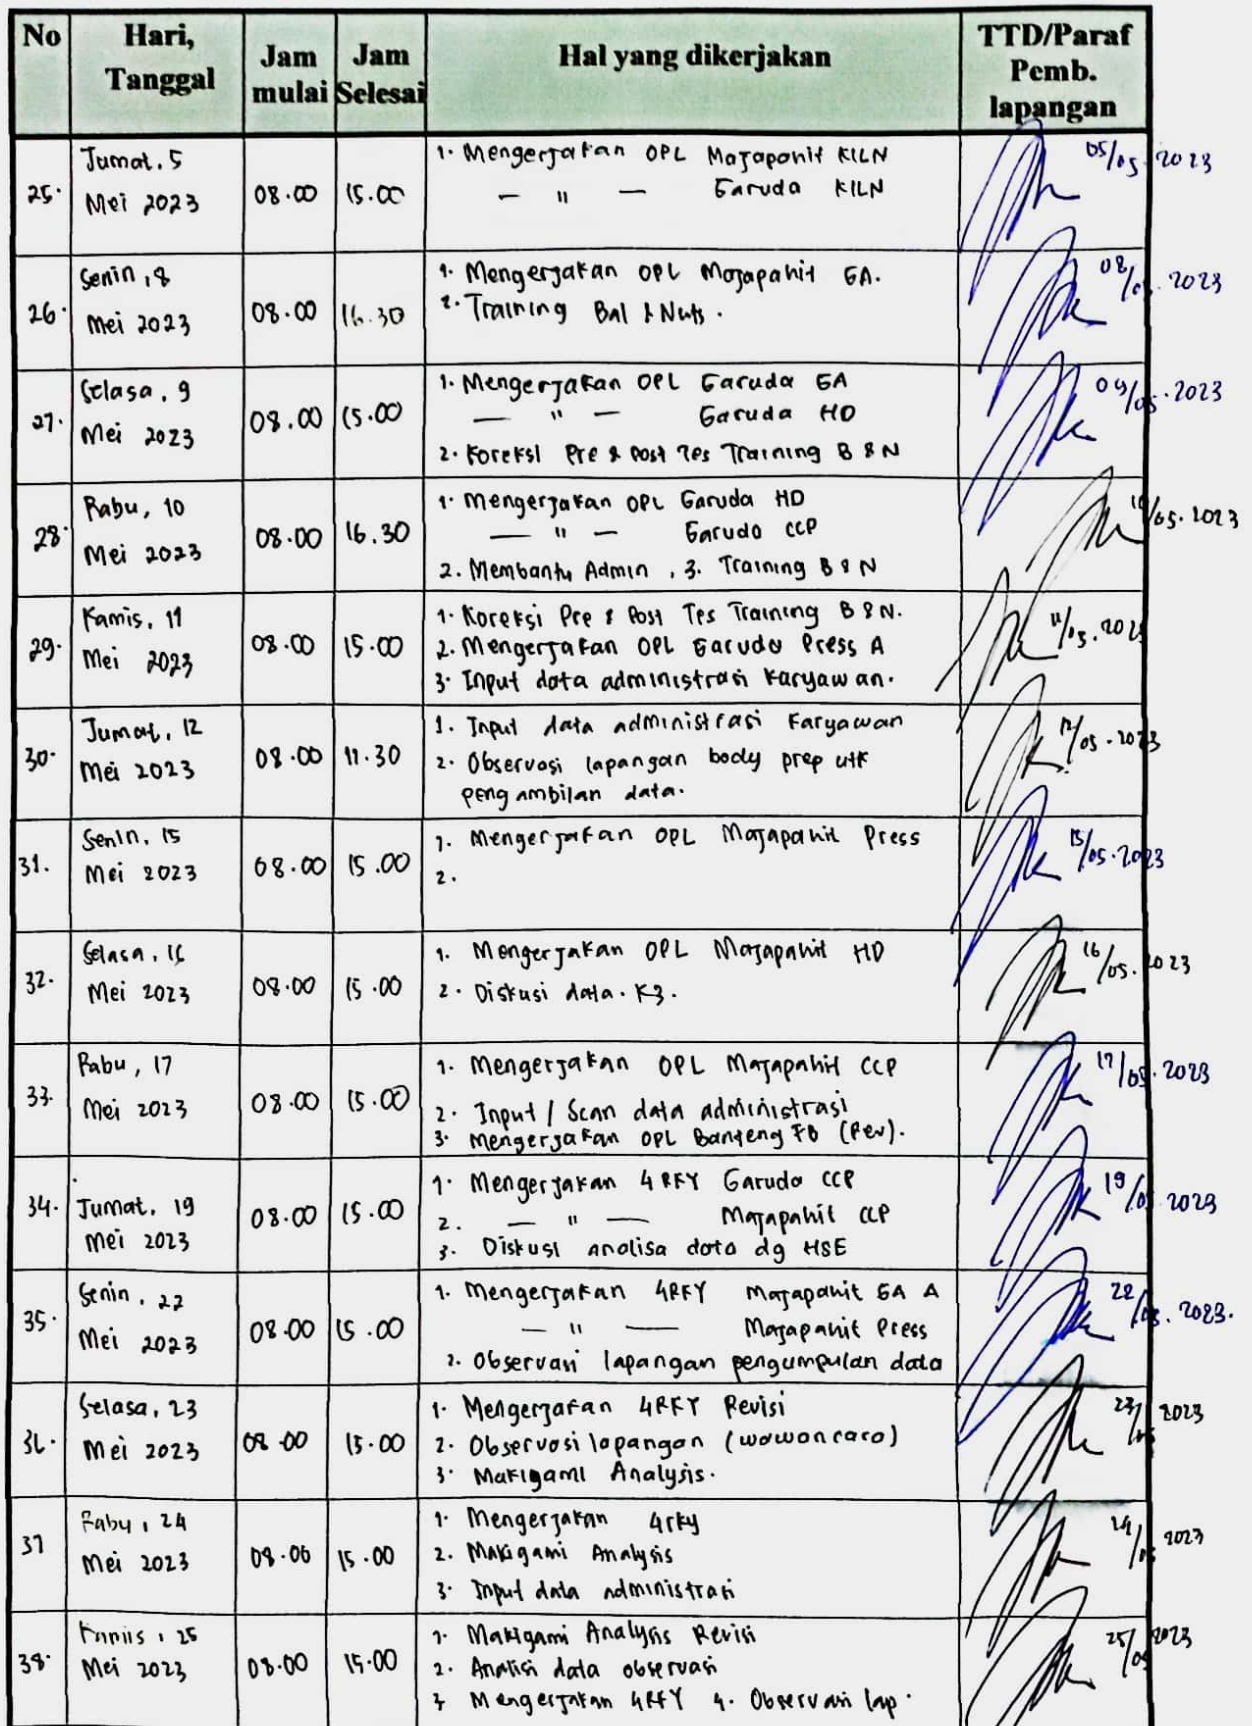 No Hari, Tanggal Jam mulai Jam Selesai Hal yang dikerjakan TTD/Paraf Pemb. lapangan
25. Jumat, 5 Mei 2023 08.00 15.00 1. Mengerjakan OPL Majapahit KILN
— " — Garuda KILN
05/05 2023
26. Senin, 8 Mei 2023 08.00 16.30 1. Mengerjakan OPL Majapahit GA.
2. Training Bal & Nuts.
08/05. 2023
27. Selasa, 9 Mei 2023 08.00 15.00 1. Mengerjakan OPL Garuda GA
— " — Garuda HD
2. Koreksi Pre & Post Tes Training B & N
09/05.2023
28. Rabu, 10 Mei 2023 08.00 16.30 1. Mengerjakan OPL Garuda HD
— " — Garuda CCP
2. Membantu Admin, 3. Training B & N
10/05.2023
29. Kamis, 11 Mei 2023 08.00 15.00 1. Koreksi Pre & Post Tes Training B & N.
2. Mengerjakan OPL Garuda Press A
3. Input data administrasi karyawan.
11/05.2023
30. Jumat, 12 Mei 2023 08.00 11.30 1. Input data administrasi karyawan
2. Observasi lapangan body prep utk
pengambilan data.
12/05.2023
31. Senin, 15 Mei 2023 08.00 15.00 1. Mengerjakan OPL Majapahit Press
2.
15/05.2023
32. Selasa, 16 Mei 2023 08.00 15.00 1. Mengerjakan OPL Majapahit HD
2. Diskusi data. K3.
16/05.2023
33. Rabu, 17 Mei 2023 08.00 15.00 1. Mengerjakan OPL Majapahit CCP
2. Input / Scan data administrasi
3. Mengerjakan OPL Banteng FB (Rev).
17/05.2023
34. Jumat, 19 Mei 2023 08.00 15.00 1. Mengerjakan 4RKY Garuda CCP
2. — " — Majapahit CCP
3. Diskusi analisa data dg HSE
19/05 2023
35. Senin, 22 Mei 2023 08.00 15.00 1. Mengerjakan 4RKY Majapahit GA A
— " — Majapahit Press
2. Observasi lapangan pengumpulan data
22/05. 2023.
36. Selasa, 23 Mei 2023 08.00 15.00 1. Mengerjakan 4RKY Revisi
2. Observasi lapangan (wawancara)
3. Makigami Analysis.
23/05 2023
37 Rabu, 24 Mei 2023 08.00 15.00 1. Mengerjakan 4rky
2. Makigami Analysis
3. Input data administrasi
24/05 2023
38. Kamis, 25 Mei 2023 08.00 15.00 1. Makigami Analysis Revisi
2. Analisi data observasi
3 Mengerjakan 4RKY 4. Observasi lap.
25/05 2023